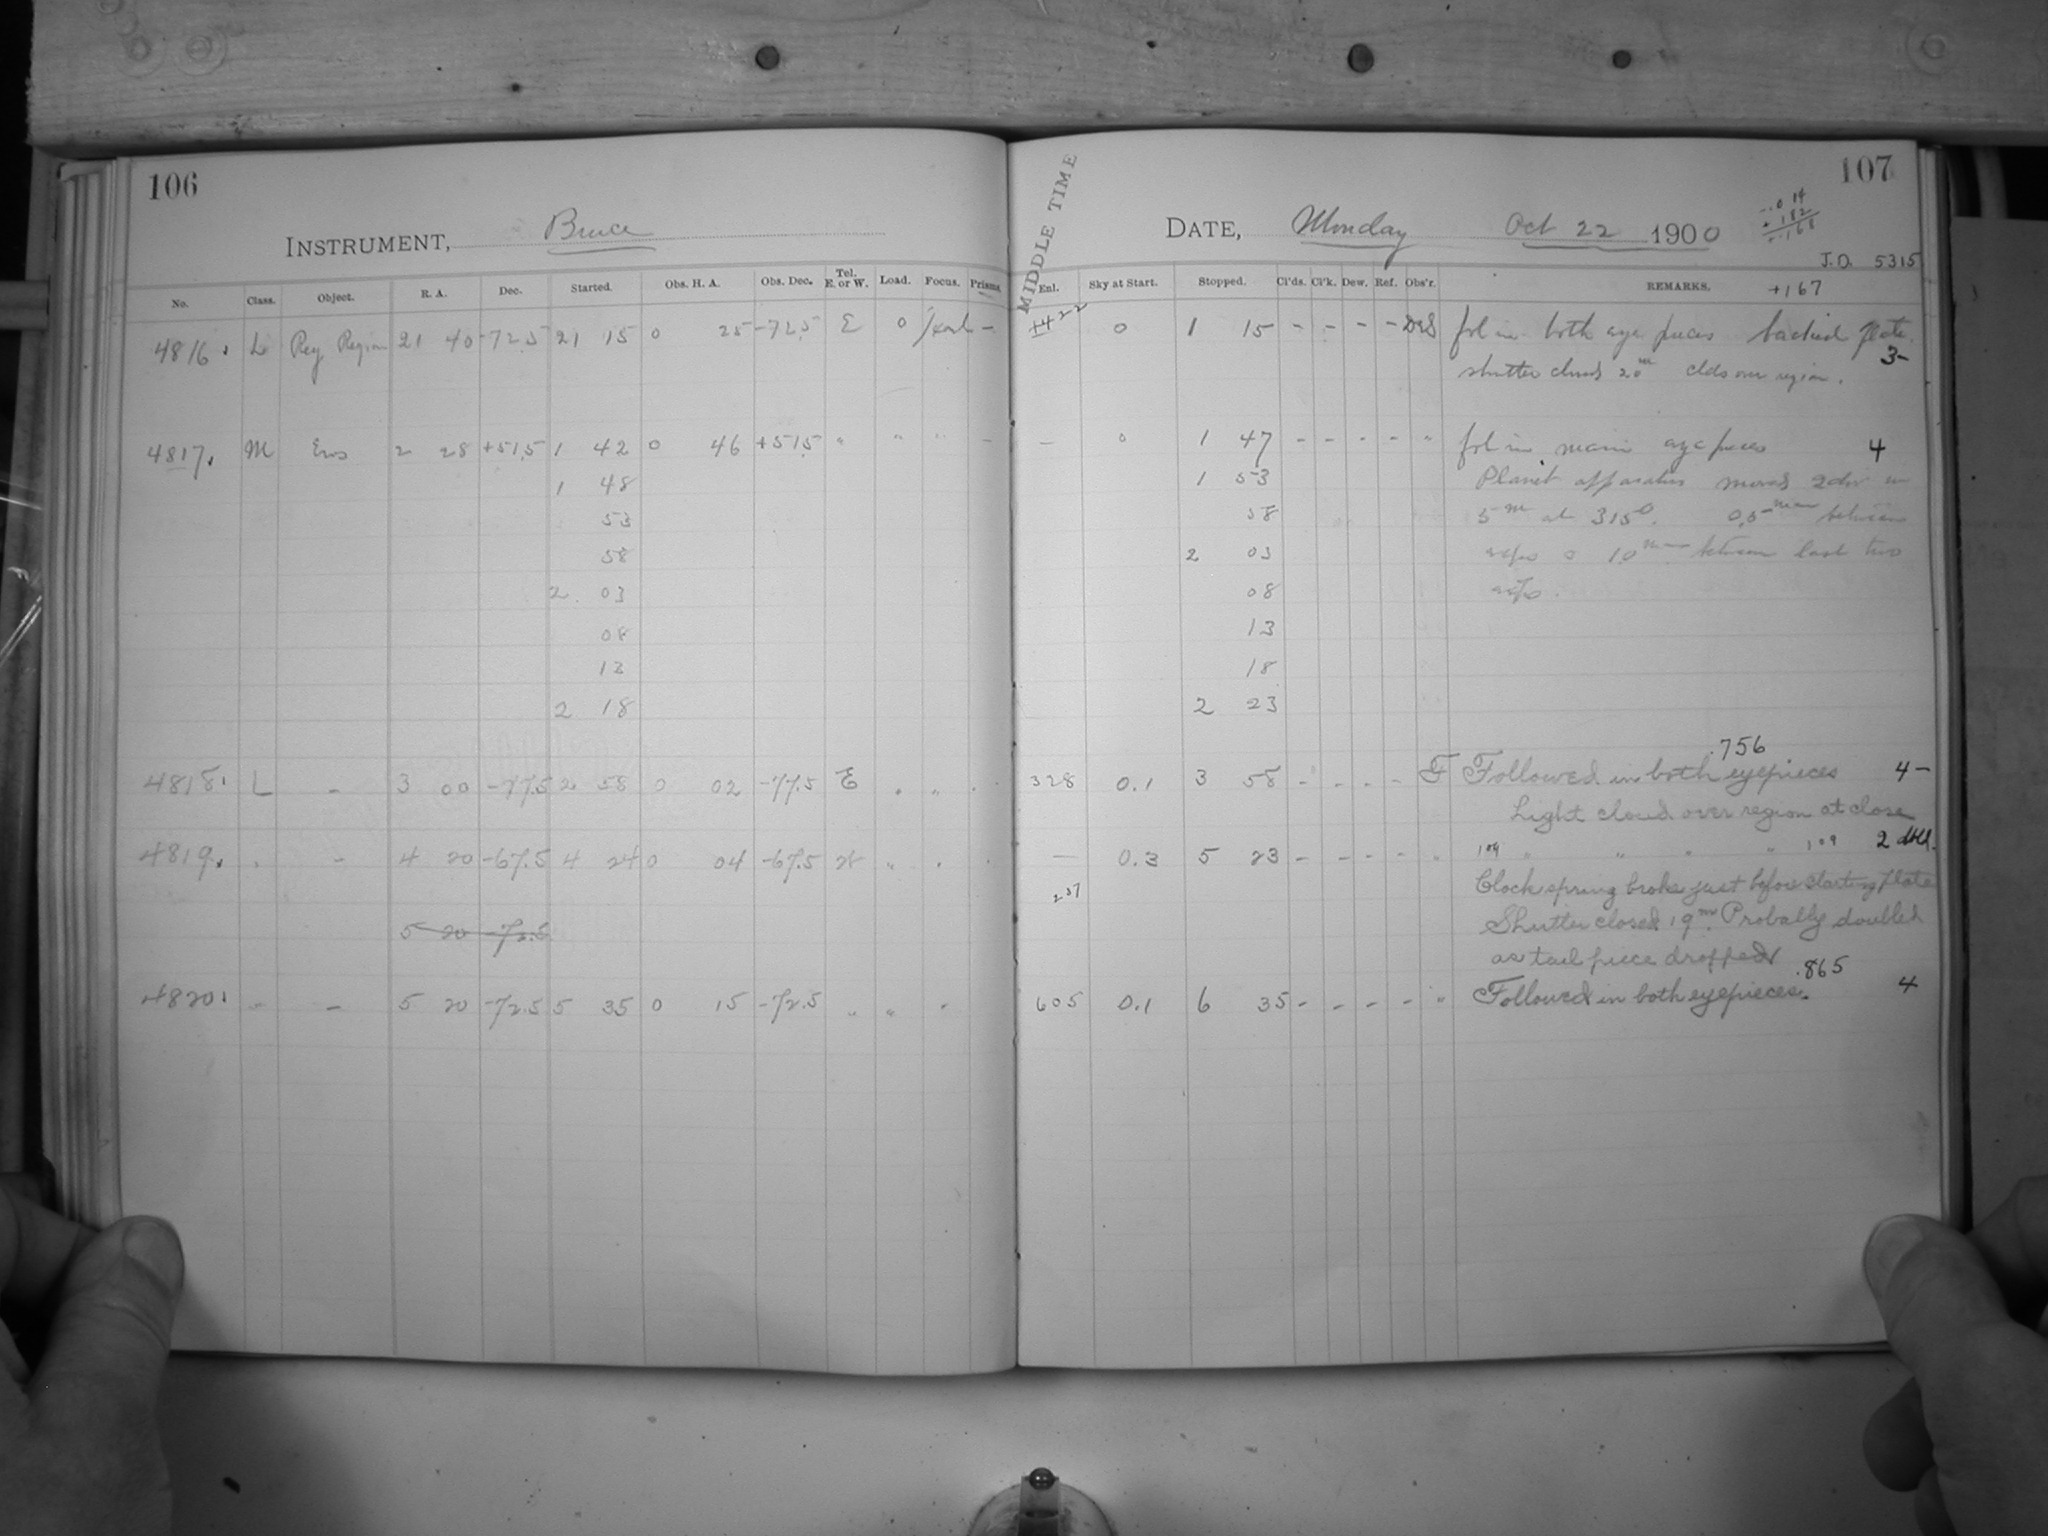 106
INSTRUMENT, Bruce
No. Class. Object. R. A. Dec. Started. Obs. H. A. Obs. Dec. Tel. E. or W. Load. Focus. Prisms.
4816. L Reg Region 21 40 -72.5 21 15 0 25 -72.5 E 0 -
4817. M Eros 2 28 +51.5 1 42 0 46 +51.5 " " " -
1 48
53
58
2 03
08
13
2 18
4818. L - 3 00 -77.5 2 58 0 02 -77.5 E " " "
4819. " - 4 20 -67.5 4 24 0 04 -67.5 W " " "
5 20 -72.5
4820. - - 5 20 -72.5 5 35 0 15 -72.5 " " "
107
MIDDLE TIME
DATE, Monday Oct 22 1900
J.D. 5315
Enl. Sky at Start. Stopped. Cl'ds. Cl'k. Dew. Ref. Obs'r. REMARKS. +167
+422 0 1 15 - - - - fol in both eye pieces backed plate
shutter closed 20m clds over region. 3-
- 0 1 47 - - - - " fol in main eye pieces 4
1 53 Planet apparatus moved 2 div in
58 5m at 315°. 0.5 mm between
2 03 exps & 1.0 mm between last two
08 exps.
13
18
2 23
.756
328 0.1 3 58 - - - - F Followed in both eyepieces 4-
Light cloud over region at close
- 0.3 5 23 - - - - " 109 " " " " 109 2 dbld.
237 Clock spring broke just before starting plate
Shutter closed 19m. Probably doubled
as tail piece dropped
.865
605 0.1 6 35 - - - - " Followed in both eyepieces. 4